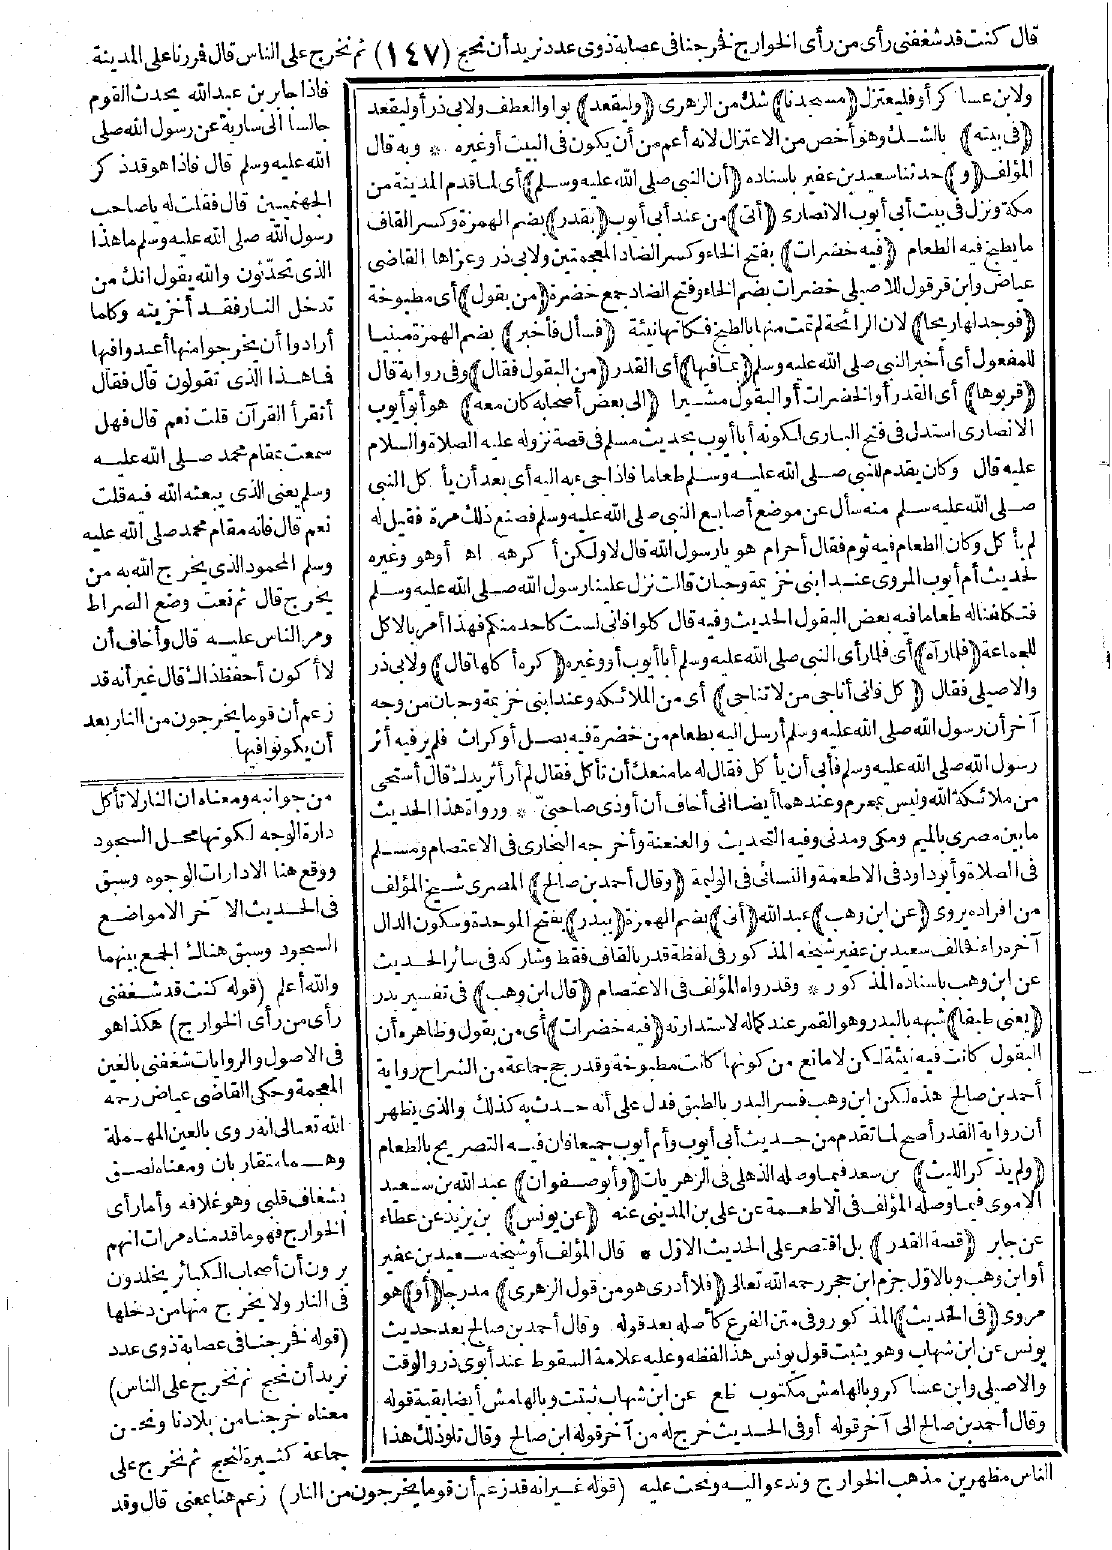 قال كنت قد شغفنى رأى من رأى الخوارج فخرجنا فى عصابة ذوى عدد نريد أن نحج (١٤٧) ثم نخرج على الناس قال فمررنا على المدينة
فاذا جابر بن عبدالله يحدث القوم
جالسا الى سارية عن رسول الله صلى
الله عليه وسلم قال فاذا هو قد ذكر
الجهنميين قال فقلت له يا صاحب
رسول الله صلى الله عليه وسلم ما هذا
الذى تحدثون والله يقول انك من
تدخل النار فقد أخزيته وكلما
أرادوا أن يخرجوا منها أعيدوا فيها
فما هذا الذى تقولون قال فقال
أتقرأ القرآن قلت نعم قال فهل
سمعت بمقام محمد صلى الله عليه
وسلم يعنى الذى يبعثه الله فيه قلت
نعم قال فانه مقام محمد صلى الله عليه
وسلم المحمود الذى يخرج الله به من
يخرج قال ثم نعت وضع الصراط
ومر الناس عليه قال وأخاف أن
لا أكون أحفظ ذاك قال غير أنه قد
زعم أن قوما يخرجون من النار بعد
أن يكونوا فيها
ولابن عساكر أو فليعتزل (مسجدنا) شك من الزهرى (وليقعد) بواو العطف ولابى ذر أو ليقعد
(فى بيته) بالشك وهو أخص من الاعتزال لانه أعم من أن يكون فى البيت أو غيره * وبه قال
المؤلف (و) حدثنا سعيد بن عفير باسناده (أن النبى صلى الله عليه وسلم) أى لما قدم المدينة من
مكة ونزل فى بيت أبى أيوب الانصارى (أتى) من عند أبى أيوب (بقدر) بضم الهمزة وكسر القاف
ما يطبخ فيه الطعام (فيه خضرات) بفتح الخاء وكسر الضاد المعجمتين ولابى ذر وعزاها القاضى
عياض وابن قرقول للاصيلى خضرات بضم الخاء وفتح الضاد جمع خضرة (من بقول) أى مطبوخة
(فوجد لها ريحا) لان الرائحة لم تمت منها بالطبخ فكانها نيئة (فسأل فأخبر) بضم الهمزة مبنيا
للمفعول أى أخبر النبى صلى الله عليه وسلم (بما فيها) أى القدر (من البقول فقال) وفى رواية قال
(قربوها) أى القدر أو الخضرات أو البقول مشيرا (الى بعض أصحابه كان معه) هو أبو أيوب
الانصارى استدل فى فتح البارى لكونه أبا أيوب بحديث مسلم فى قصة نزوله عليه الصلاة والسلام
عليه قال وكان يقدم للنبى صلى الله عليه وسلم طعاما فاذا جىء به اليه أى بعد أن يأكل النبى
صلى الله عليه سلم منه سأل عن موضع أصابع النبى صلى الله عليه وسلم فصنع ذلك مرة فقيل له
لم يأكل وكان الطعام فيه ثوم فقال أحرام هو يا رسول الله قال لا ولكن أكرهه اه أو هو وغيره
لحديث أم أيوب المروى عند ابنى خزيمة وحبان قالت نزل علينا رسول الله صلى الله عليه وسلم
فتكلفنا له طعاما فيه بعض البقول الحديث وفيه قال كلوا فانى لست كاحد منكم فهذا أمر بالاكل
للجماعة (فلما رآه) أى فلما رأى النبى صلى الله عليه وسلم أبا أيوب أو وغيره (كره أكلها قال) ولابى ذر
والاصيلى فقال (كل فانى أناجى من لا تناجى) أى من الملائكة وعند ابنى خزيمة وحبان من وجه
آخر أن رسول الله صلى الله عليه وسلم أرسل اليه بطعام من خضرة فيه بصل أو كراث فلم ير فيه أثر
رسول الله صلى الله عليه وسلم فأبى أن يأكل فقال له ما منعك أن تأكل فقال لم أر أثر يدك قال أستحى
من ملائكة الله وليس بمحرم وعندهما أيضا انى أخاف أن أوذى صاحبى * ورواة هذا الحديث
ما بين مصرى بالميم ومكى ومدنى وفيه التحديث والعنعنة وأخرجه البخارى فى الاعتصام ومسلم
فى الصلاة وأبو داود فى الاطعمة والنسائى فى الوليمة (وقال أحمد بن صالح) المصرى شيخ المؤلف
من افراده يروى (عن ابن وهب) عبدالله (أتى) بضم الهمزة (ببدر) بفتح الموحدة وسكون الدال
آخره راء فخالف سعيد بن عفير شيخه المذكور فى لفظة قدر بالقاف فقط وشاركه فى سائر الحديث
عن ابن وهب باسناده المذكور * وقد رواه المؤلف فى الاعتصام (قال ابن وهب) فى تفسير بدر
(يعنى طبقا) شبهه بالبدر وهو القمر عند كماله لاستدارته (فيه خضرات) أى من بقول وظاهره أن
البقول كانت فيه نيئة لكن لا مانع من كونها كانت مطبوخة وقد رجح جماعة من الشراح رواية
أحمد بن صالح هذه لكن ابن وهب فسر البدر بالطبق فدل على أنه حدث به كذلك والذى يظهر
أن رواية القدر أصح لما تقدم من حديث أبى أيوب وأم أيوب جميعا فان فيه التصريح بالطعام
(ولم يذكر الليث) بن سعد فيما وصله الذهلى فى الزهريات (وأبو صفوان) عبدالله بن سعيد
الاموى فيما وصله المؤلف فى الاطعمة عن على بن المدينى عنه (عن يونس) بن يزيد عن عطاء
عن جابر (قصة القدر) بل اقتصر على الحديث الاول * قال المؤلف أو شيخه سعيد بن عفير
أو ابن وهب وبالاول جزم ابن حجر رحمه الله تعالى (فلا أدرى هو من قول الزهرى) مدرجا (أو) هو
مروى (فى الحديث) المذكور وفى متن الفرع كأصله بعد قوله وقال أحمد بن صالح بعد حديث
يونس عن ابن شهاب وهو يثبت قول يونس هذا لفظه وعليه علامة السقوط عند أبوى ذر والوقت
والاصيلى وابن عساكر وبالهامش مكتوب عن ابن شهاب ثبتت وبالهامش أيضا بقية قوله
وقال أحمد بن صالح الى آخر قوله أو فى الحديث خرج له من آخر قوله ابن صالح وقال تلو ذلك هذا
من جوانبه ومعناه ان النار لا تأكل
دارة الوجه لكونها محل السجود
ووقع هنا الا دارات الوجوه وسبق
فى الحديث الآخر الا مواضع
السجود وسبق هناك الجمع بينهما
والله أعلم (قوله كنت قد شغفنى
رأى من رأى الخوارج) هكذا هو
فى الاصول والروايات شغفنى بالغين
المعجمة وحكى القاضى عياض رحمه
الله تعالى انه روى بالعين المهملة
وهما متقاربان ومعناه لصق
بشغاف قلبى وهو غلافه وأما رأى
الخوارج فهو ما قدمناه مرات انهم
يرون أن أصحاب الكبائر يخلدون
فى النار ولا يخرج منها من دخلها
(قوله فخرجنا فى عصابة ذوى عدد
نريد أن نحج ثم نخرج على الناس)
معناه خرجنا من بلادنا ونحن
جماعة كثيرة لنحج ثم نخرج على
الناس مظهرين مذهب الخوارج وندعو اليه ونحث عليه (قوله غير انه قد زعم أن قوما يخرجون من النار) زعم هنا بمعنى قال وقد